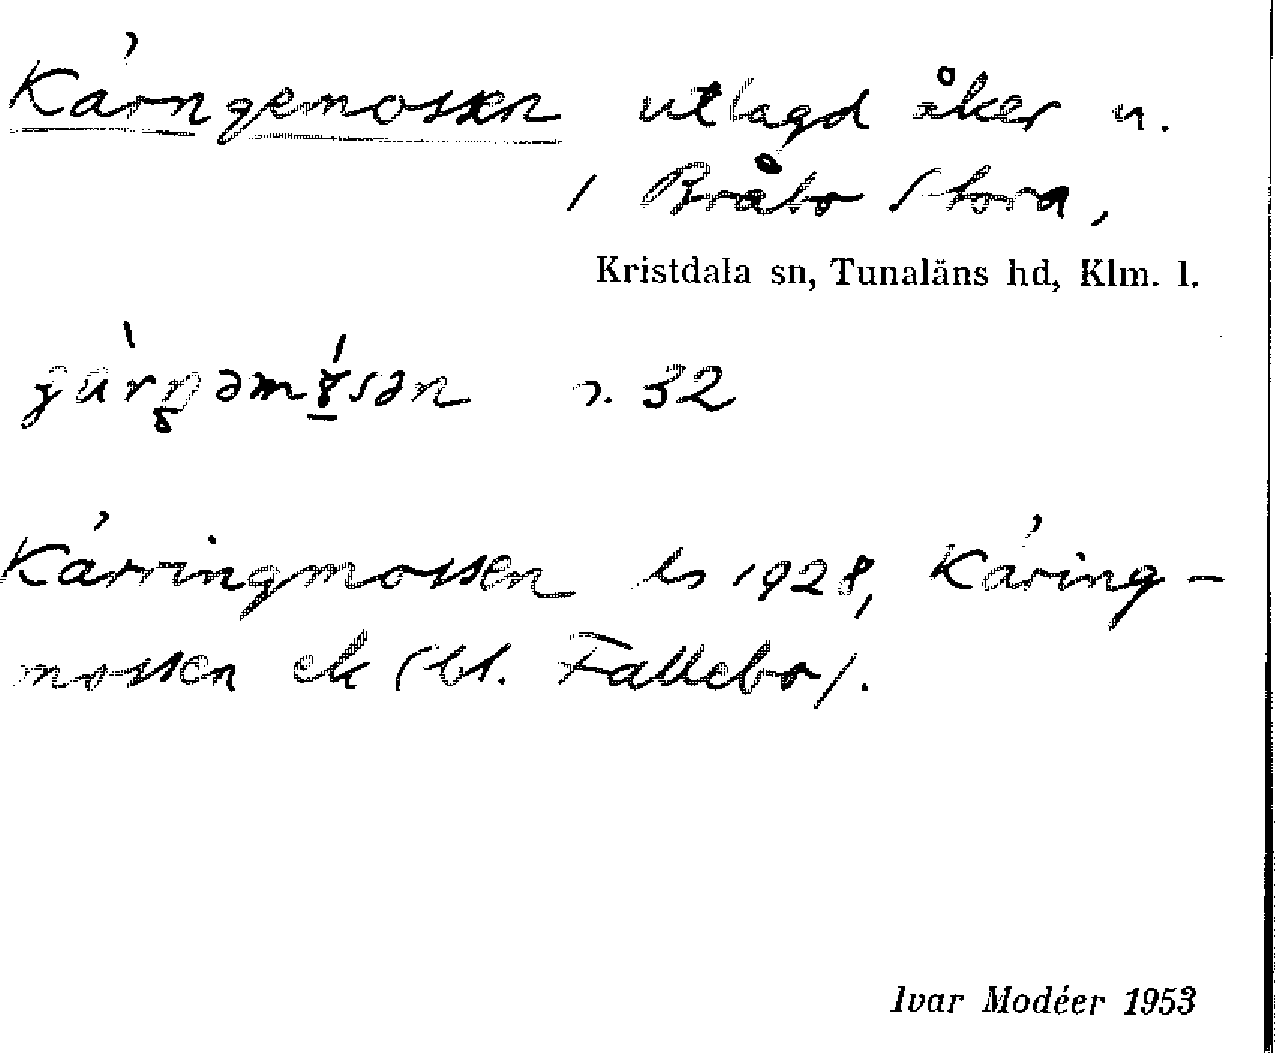 Kärngemossen utlagd åker u.
/ Bråbo Stora,
Kristdala sn, Tunaläns hd, Klm. l.
32
Kärringmossen ls 1928, Käring-
mossen ek (bl. Fallebo).
Ivar Modéer 1953